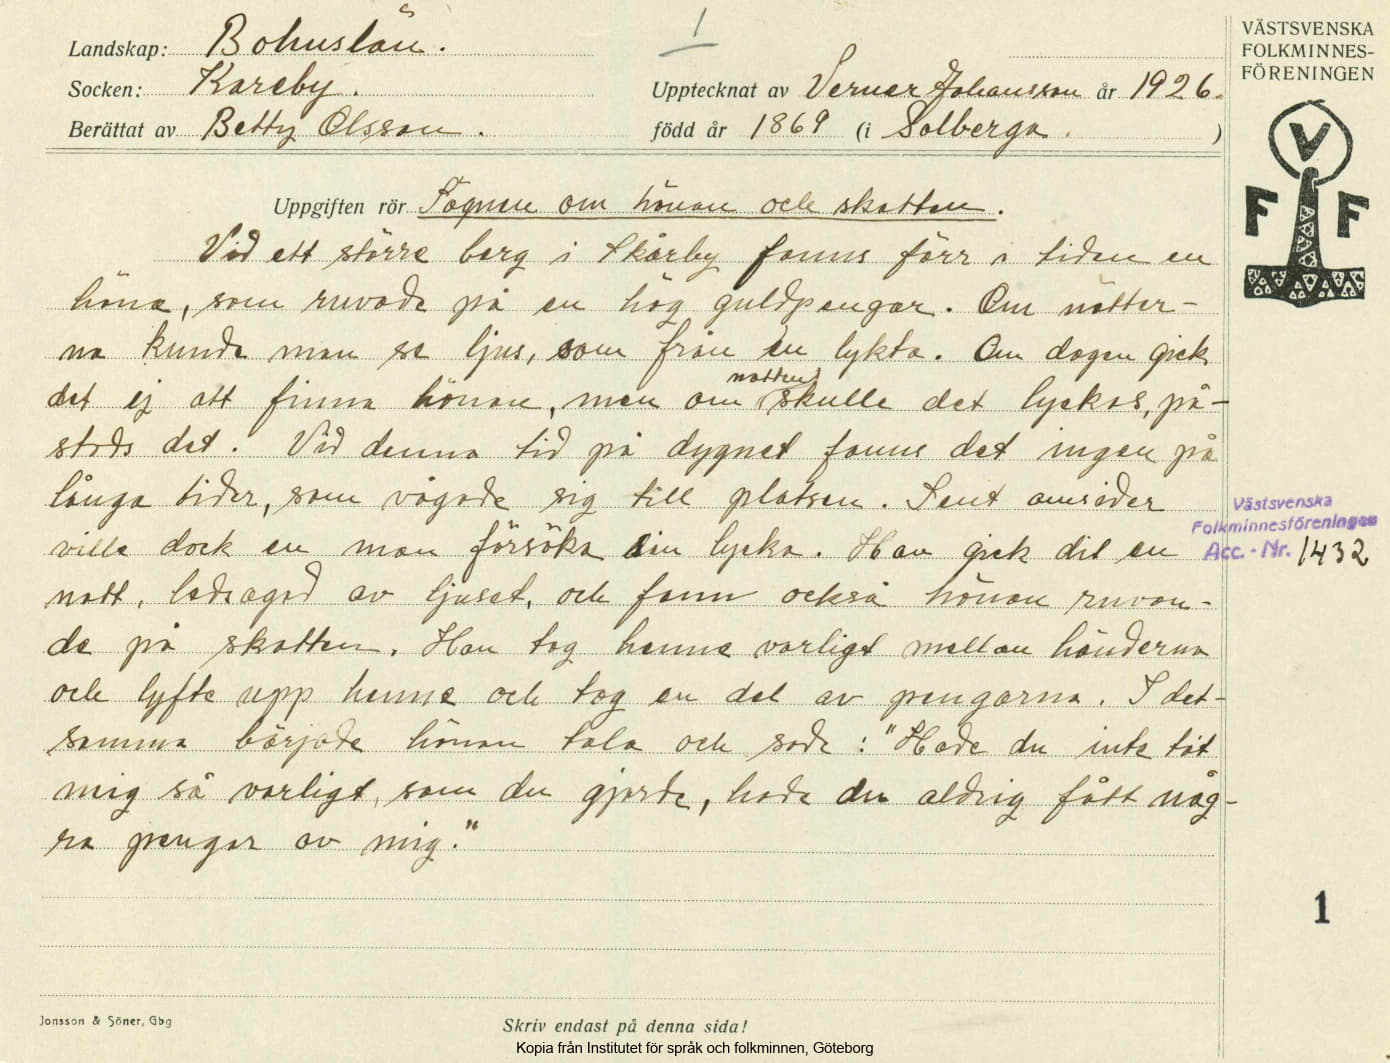 Landskap: Bohuslän.
Socken: Kareby.
Berättat av Betty Olsson.
1
Upptecknat av Verner Johansson år 1926.
född år 1869 (i Solberga. )
VÄSTSVENSKA
FOLKMINNES-
FÖRENINGEN
V
F F
Uppgiften rör Sägnen om hönan och skatten.
Vid ett större berg i Skårby fanns förr i tiden en
höna, som ruvade på en hög guldpengar. Om nätter-
na kunde man se ljus, som från en lykta. Om dagen gick
det ej att finna hönan, men om natten skulle det lyckas, på-
stods det. Vid denna tid på dygnet fanns det ingen på
långa tider, som vågade sig till platsen. Sent omsider
ville dock en man försöka sin lycka. Han gick dit en
natt, ledsagad av ljuset, och fann också hönan ruvan-
de på skatten. Han tog henne varligt mellan händerna
och lyfte upp henne och tog en del av pengarna. I det-
samma började hönan tala och sade: "Hade du inte tat
mig så varligt, som du gjorde, hade du aldrig fått någ-
ra pengar av mig."
Västsvenska
Folkminnesföreningen
Acc.-Nr. 1432
1
Jonsson & Söner, Gbg
Skriv endast på denna sida!
Kopia från Institutet för språk och folkminnen, Göteborg